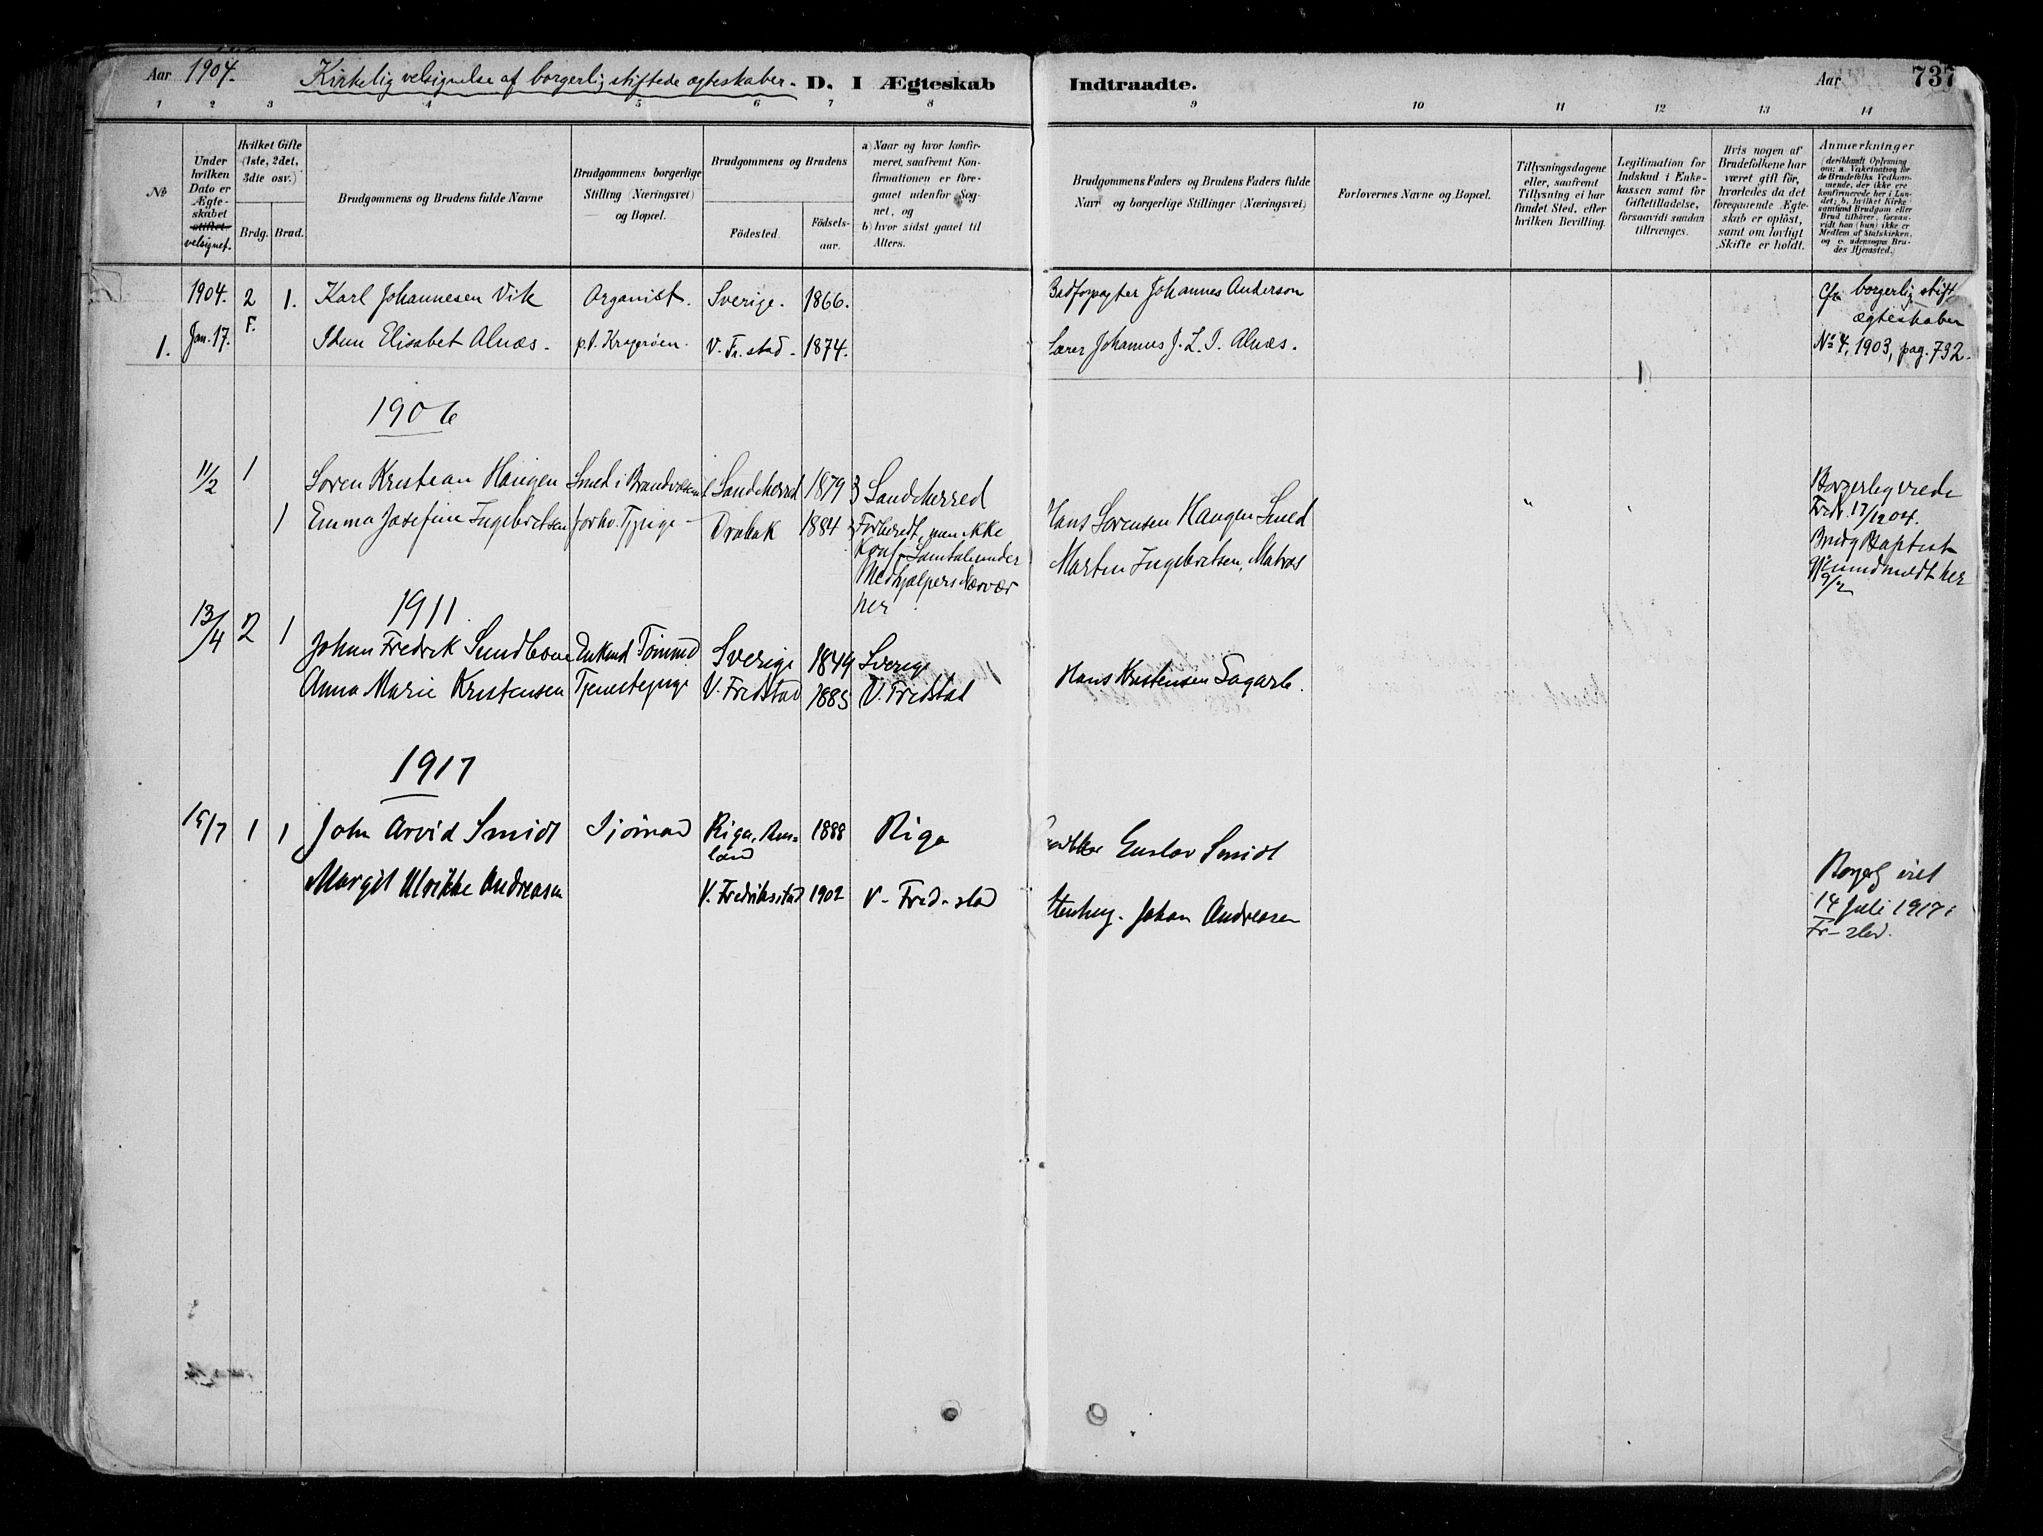 Aar 1904. Kirkelig velsignelse af borgerlig stiftede ægteskaber. D. I Ægteskab Indtraadte. Aar 737
1 2 3 4 5 6 7 8 9 10 11 12 13 14
No
Under hvilken Dato er Ægteskabet stiftet velsignet.
Hvilket Gifte (1ste, 2det, 3die osv.)
Brdg. Brud.
Brudgommens og Brudens fulde Navne
Brudgommens borgerlige Stilling (Næringsvei) og Bopæl.
Brudgommens og Brudens
Fødested. Fødselsaar.
a) Naar og hvor konfirmeret, saafremt Konfirmationen er foregaaet udenfor Sognet, og
b) hvor sidst gaaet til Alters.
Brudgommens Faders og Brudens Faders fulde Navn og borgerlige Stillinger (Næringsvei)
Forlovernes Navne og Bopæl.
Tillysningsdagene eller, saafremt Tillysning ei har fundet Sted, efter hvilken Bevilling.
Legitimation for Indskud i Enkekassen samt for Giftetilladelse, forsaavidt saadan tiltrænges.
Hvis nogen af Brudefolkene har været gift før, hvorledes da det foregaaende Ægteskab er opløst, samt om lovligt Skifte er holdt.
Anmærkninger (deriblandt Oplysning om: a. Vakcination for de Brudefolks Vedkommende, der ikke ere konfirmerede her i Landet; b. hvilket Kirkesamfund Brudgom eller Brud tilhører, forsaavidt han (hun) ikke er Medlem af Statskirken, og c. udensogns Brudes Hjemsted.)
1904. 2 1. Karl Johannesen Vik Organist. Sverige. 1866. Johannes Anderson Cfr. borgerlig stift.
F. ægteskaber
1. Jan. 17. Idun Elisabet Alnæs. p.t. Kragerøen. V. Fr.stad. 1874. Lærer Johannes J. L. I. Alnæs. No 4, 1903, pag. 732.
1906
11/2 1 Søren Kristian Haugen Smed i Sandeherred 1879 Sandeherred Hans Sørensen Haugen Smed Borgerlig viede
1 Emma Josefine Ingebretsen Drøbak 1884 Forberedt, men ikke Martin Ingebretsen, Matros Fredr. 17/12 04.
Konf. Samtale under Brudg Baptist
Medhjælpers Nærvær her 9/2
1911
13/4 2 1 Johan Fredrik Enkemd Tømmd Sverige 1849 Sverige
Anna Marie Kristensen Tjenestepige V. Fredstad 1885 V. Fredstad Hans Kristensen
1917
15/7 1 1 John Arvid Smidt Sjømand Riga, Russland 1888 Riga Gustav Smidt
Margit Ulrikke Andreasen V. Fredriksstad 1902 V. Fred-stad Stenhug. Johan Andreasen Borgerlig viet
14 Juli 1917 i
Fr-stad.